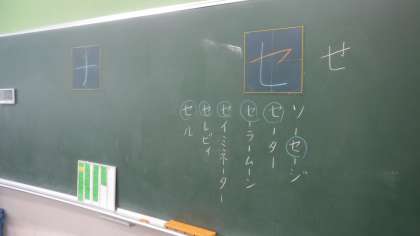 ゼ
セ
ナ
ソーセージ
セーター
セーラームーン
セイミネーター
セレビィ
セル